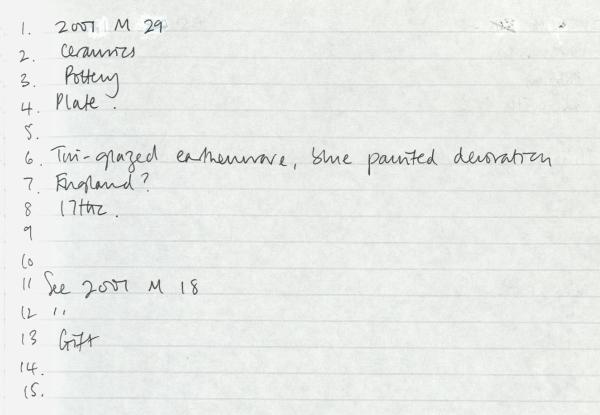 1. 2007 M 29
2. Ceramics
3. Pottery
4. Plate.
5.
6. Tin-glazed earthenware, blue painted decoration
7. England?
8 17thc.
9
10
11 See 2007 M 18
12 "
13 Gift
14.
15.